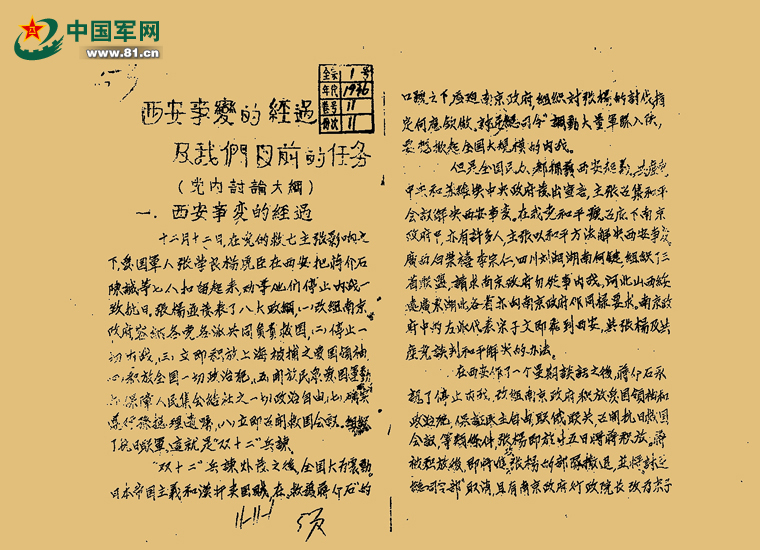 中国军网
www.81.cn
全宗 1 号
年代 1936
卷号 11
件次 11
西安事變的經過
及我們目前的任务
(党内討論大綱)
一、西安事变的經過
十二月十二日,在党的救亡主张影响之
下,爱国軍人张学良楊虎臣在西安把蒋介石
陳誠等七人扣留起来,劝导他们停止内战一
致抗日,张楊並发表了八大政綱,一、改組南京
政府容納各党各派共同負責救国,二、停止一
切内战,三、立即釋放上海被捕之爱国領袖
四、釋放全国一切政治犯,五、開放民众爱国運動
六、保障人民集会結社之一切政治自由,七、確实
遵行孫总理遺嘱,八、立即召開救国会議。
了抗日联軍,這就是"双十二"兵諫。
"双十二"兵諫外发之後,全国大为震動,
日本帝国主義和漢奸卖国賊,在"救援蒋介石"的
口號之下 南京政府,組織対张楊的討伐,指
定何應欽做 总司令" 調動大量軍隊入陕,
要想掀起全国大規模的内战。
但是全国民众 西安起義,共產党
中央和苏維埃中央政府发出宣言,主张召集和平
会議解决西安事变。在我党和平 之下南京
政府中,亦有許多人主张以和平方法解决西安事变
廣西白崇禧李宗仁,四川刘湘湖南何鍵,組織了三
省联盟,請求南京政府勿从事内战,河北山西綏
遠廣东湖北各省亦向南京政府作同樣要求。南京政
府中的左派代表宋子文即飛到西安,與张楊及共
產党談判和平解决的办法。
在西安作了一个星期談話之後,蒋介石承
認了停止内战,改組南京政府釋放爱国領袖和
政治犯,保証民主自由,联俄联共,召開抗日救国
会議,等類條件,张楊即於廿五日将蒋釋放。蒋
被釋放後,即将進 张楊的部隊撤退,並将討逆
總司令部"取消,且有南京政府行政院長改为宋子
11-11-1
5页